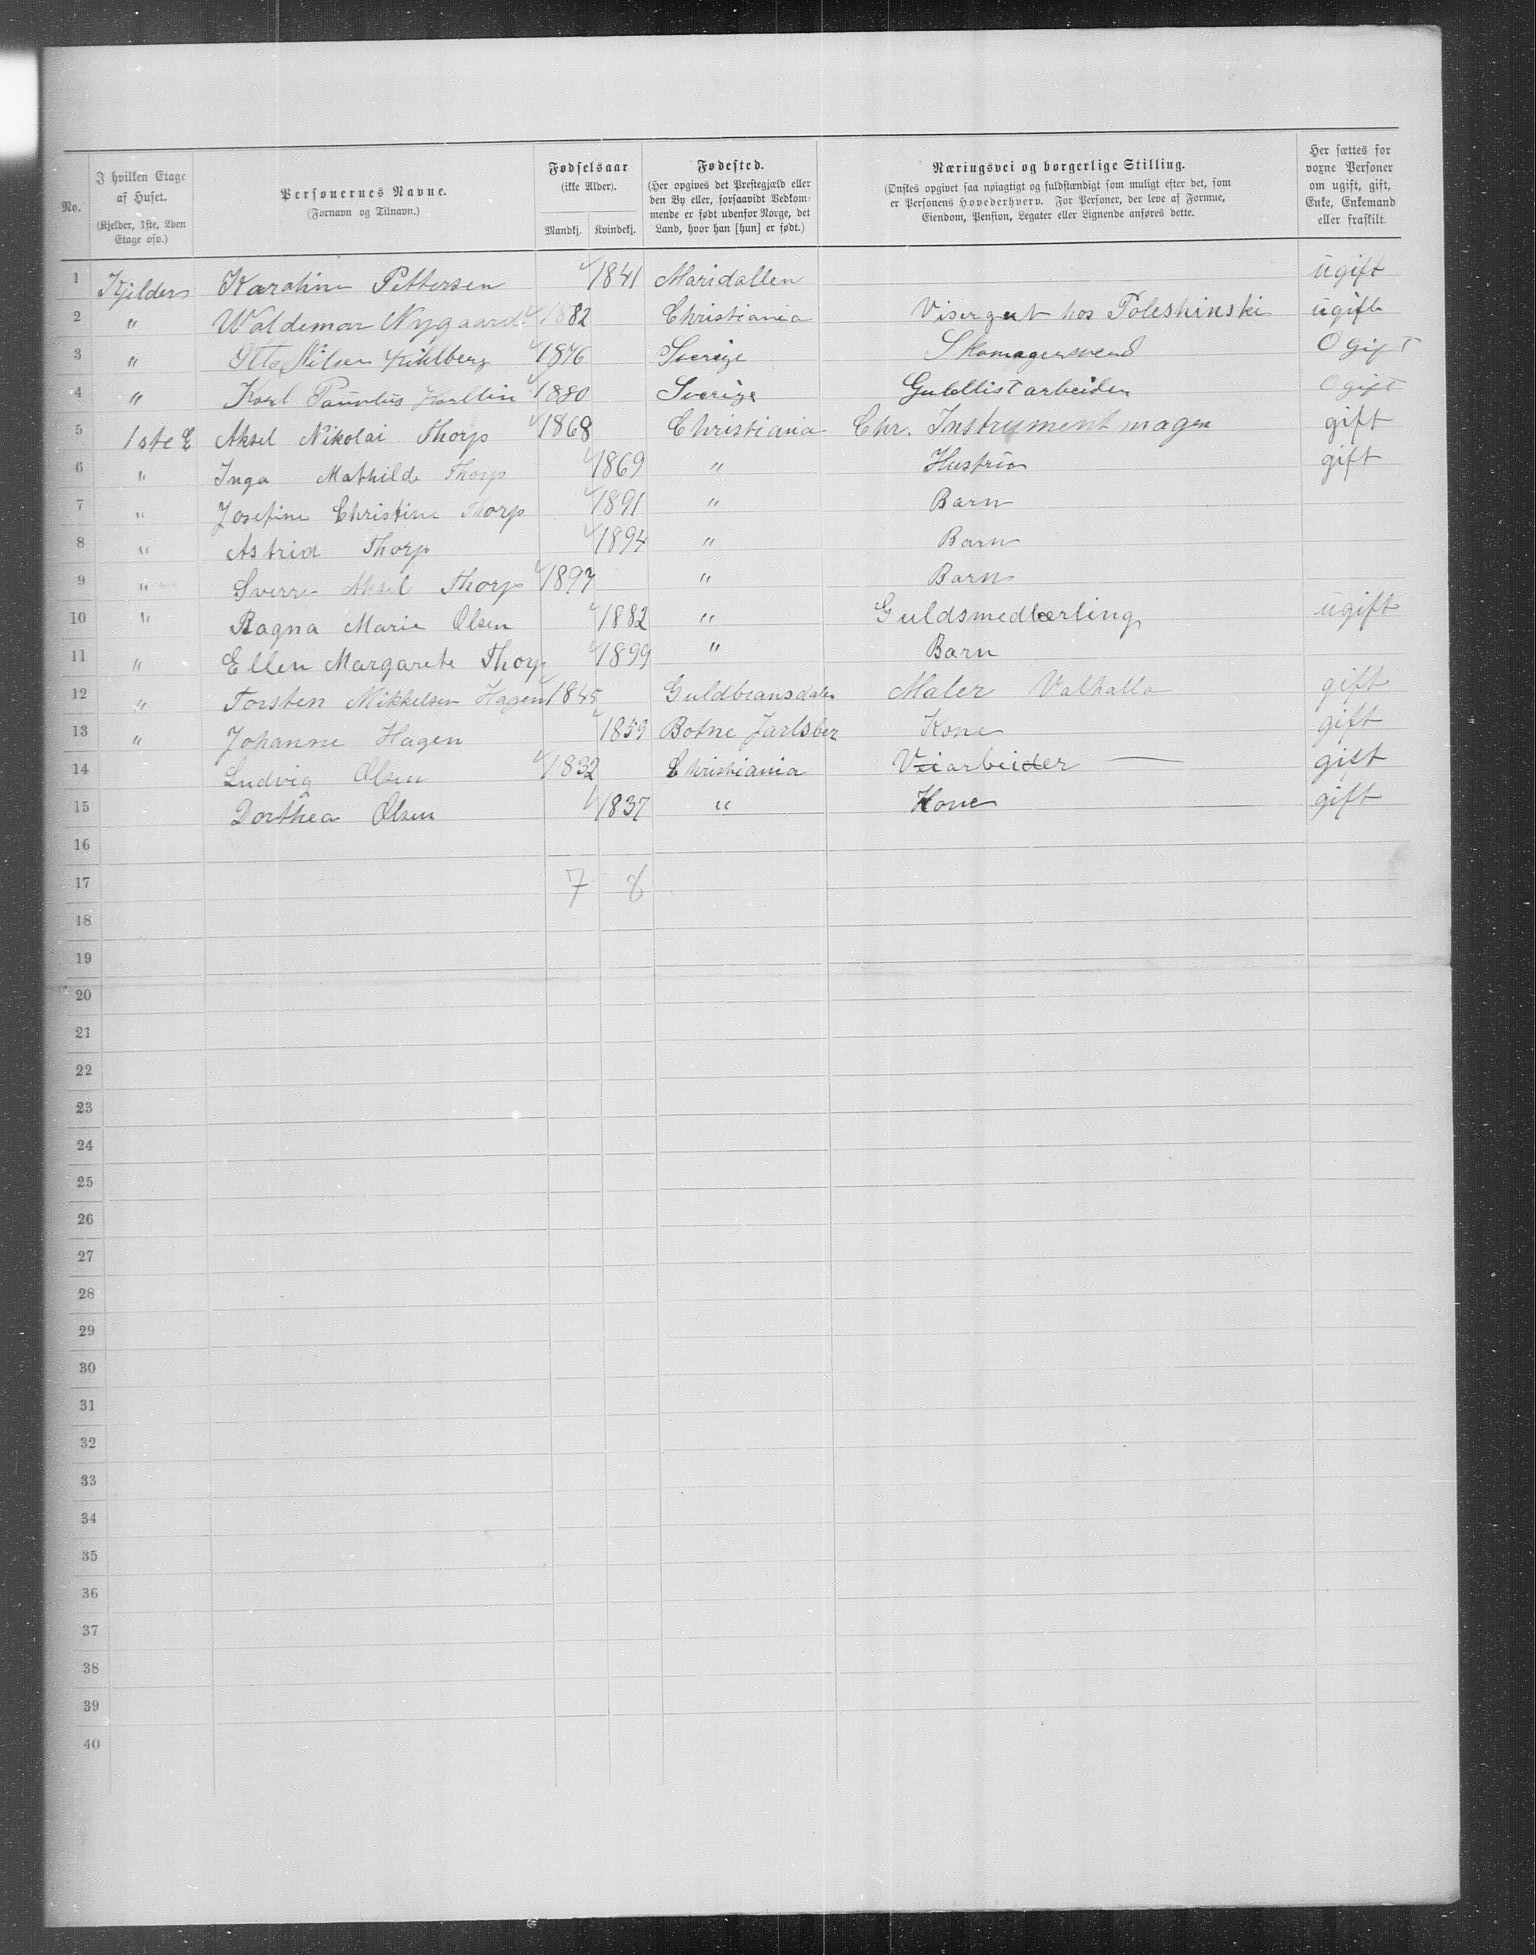 No. | I hvilken Etage af Huset. (Kjelder, 1ste, 2den Etage osv.) | Personernes Navne. (Fornavn og Tilnavn.) | Fødselsaar (ikke Alder). Mandkj. | Kvindekj. | Fødested. (Her opgives det Prestegjæld eller den By eller, forsaavidt Vedkommende er født udenfor Norge, det Land, hvor han [hun] er født.) | Næringsvei og borgerlige Stilling. (Ønskes opgivet saa nøiagtigt og fuldstændigt som muligt efter det, som er Personens Hovederhverv. For Personer, der leve af Formue, Eiendom, Pension, Legater eller Lignende anføres dette.) | Her sættes for voxne Personer om ugift, gift, Enke, Enkemand eller fraskilt.
1 Kjelder Karoline Pettersen 1841 Maridallen ugift
2 " Waldemar Nygaard 1882 Christiania Visergut hos Poleshinski ugift
3 " Otto Nilsen Kihlberg 1876 Sverige Skomagersvend Ogift
4 " Karl 1880 Sverige Guldlistarbeider Ogift
5 1ste E Aksel Nikolai Thorp 1868 Christiania Chr. Instrumentmager gift
6 " Inga Mathilde Thorp 1869 " Hustru gift
7 " Josefine Christine Thorp 1891 " Barn
8 " Astrid Thorp 1894 " Barn
9 " Sverre Aksel Thorp 1897 " Barn
10 " Ragna Marie Olsen 1882 " Guldsmedlærling ugift
11 " Ellen Margarete Thorp 1899 " Barn
12 " Torsten Mikkelsen Hagen 1845 Guldbransdalen Maler Valhalla gift
13 " Johanne Hagen 1859 Botne Jarlsber Kone gift
14 Ludvig Olsen 1832 Christiania Viarbeider — gift
15 Dorthea Olsen 1837 " Kone — gift
16
17 7 8
18
19
20
21
22
23
24
25
26
27
28
29
30
31
32
33
34
35
36
37
38
39
40